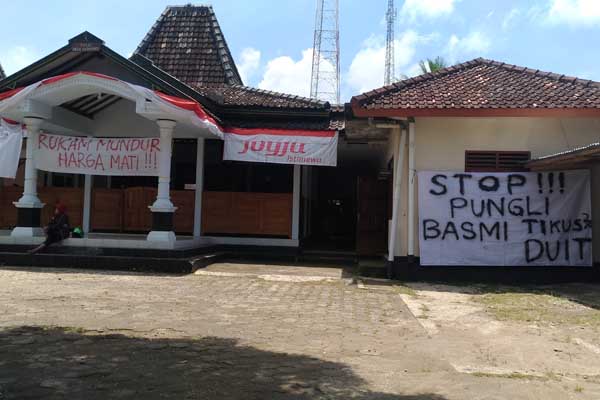 RUKAM MUNDUR
HARGA MATI !!!
Jogja
Istimewa
STOP !!!
PUNGLI
BASMI TIKUS²
DUIT